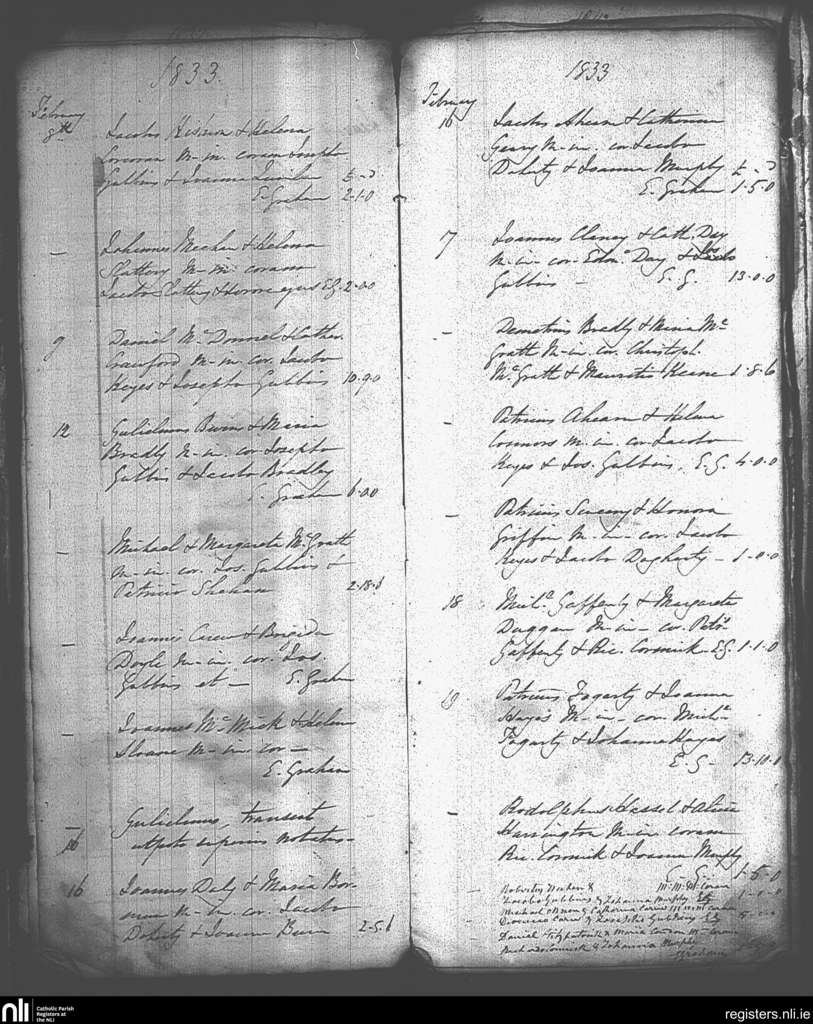 1833.
February
8th Jacobus & Helena
Corcoran M-in- coram Joseph
Gubbins & Joanna £ - D
E. Graham 2-1-0
- Johannes Meehan & Helena
Slattery M-in- coram
Jacobo Slattery & Honora E.G. 2-0-0
9 Daniel McDonnel & Cather.
Crawford M-in. cor. Jacobo
Keyes & Josepho Gubbins 10-9-0
12 Gulielmus Burn & Maria
Bradly M-in- cor Josepho
Gubbins & Jacobo Bradley
E. Graham 6-0-0
- Michael & Margareta McGrath
M-in- cor. Jos. Gubbins &
Patricio Sheehan 2-18-1
- Joannes Carew & Brigida
Doyle M-in- cor. Jos.
Gubbins et - E. Graham
- Joannes McMick & Helena
Sloane M-in- cor -
E. Graham
- Gulielmus, transeat
16 utpote superius notatus-
16 Joannes Daly & Maria Bor-
M-in- cor. Jacobo
Doherty & Joanna Burn 2-5-1
1833
February
16 Jacobus Ahern & Catherina
Geary M-in- cor Jacobo
Doherty & Joanna Murphy £ - D
E. Graham 1-5-0
17 Joannes Clancy & Cath. Day
M-in- cor. Edmo Day & Jos
Gubbins - E. G. 13-0-0
- Demetrius Bradly & Maria Mc
Grath M-in- cor. Christoph.
McGrath & Mauritio Keane 1-8-6
- Patricius Ahearn & Helena
Connors M-in- cor Jacobo
Keyes & Jos. Gubbins, E.G. 4-0-0
- Patricius & Honora
Griffin M-in- cor. Jacobo
Keyes & Jacobo Dogherty - 1-0-0
18 Michl Gafferty & Margareta
Duggan M-in- cor. Petro
Gafferty & Ric. Cormick E.G. 1-1-0
19 Patricius Fogarty & Joanna
Hayes M-in- cor. Michl
Fogarty & Johanna Hayes
E. G- 13-10-0
- Rodolphus Hassel & Alicia
Harrington M-in- coram
Ric. Cormick & Joanna Murphy
E. G. 1-5-0
Robertus & M- M- M- Coram
Jacobo Gubbins & Johanna Murphy E.G. 1-0-0
Michael & Catherina Carew M-in-
Carew & Josephs Gubbins E.G.
Daniel Fitzpatrick & Maria M- coram
Richd Cormick & Johanna Murphy
E Graham
nli Catholic Parish
Registers at
the NLI
registers.nli.ie